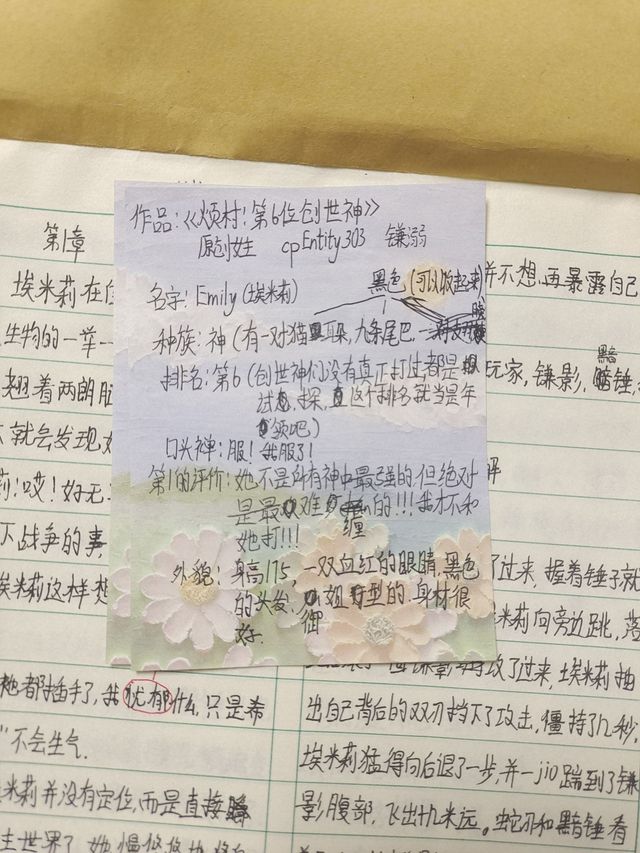 作品:《烦村:第6位创世神》
原创女主 cp Entity303 镰溺
名字: Emily (埃米莉)
黑色(可以收起来)
种族: 神(有一对猫耳朵, 九条尾巴.
排名: 第6(创世神们没有真正打过都是
试探, 这个排名就当是年
领吧)
口头禅: 服! 我服了!
第1的评价: 她不是所有神中最强的.但绝对
是最难缠的!!! 我才不和
她打!!!
外貌: 身高175, 一双血红的眼睛, 黑色
的头发. 御姐型的. 身材很
好.
第1章
埃米莉在
生物的一举一
翘着两郎腿
就会发现
莉: 哎! 好无
下战争的事
埃米莉这样想
她都插手了, 我忧郁什么, 只是希
"不会生气.
米莉并没有定位, 而是直接瞬
主世界了. 她慢悠悠地
并不想再暴露自己
玩家, 镰影, 黯锤,
评
了过来, 握着锤子就
米莉向旁边跳, 落
攻了过来, 埃米莉抽
出自己背后的双刃挡下了攻击, 僵持了几秒,
埃米莉猛得向后退了一步, 并一jio踹到了镰
影腹部, 飞出十几米远。蛇刃和黯锤看